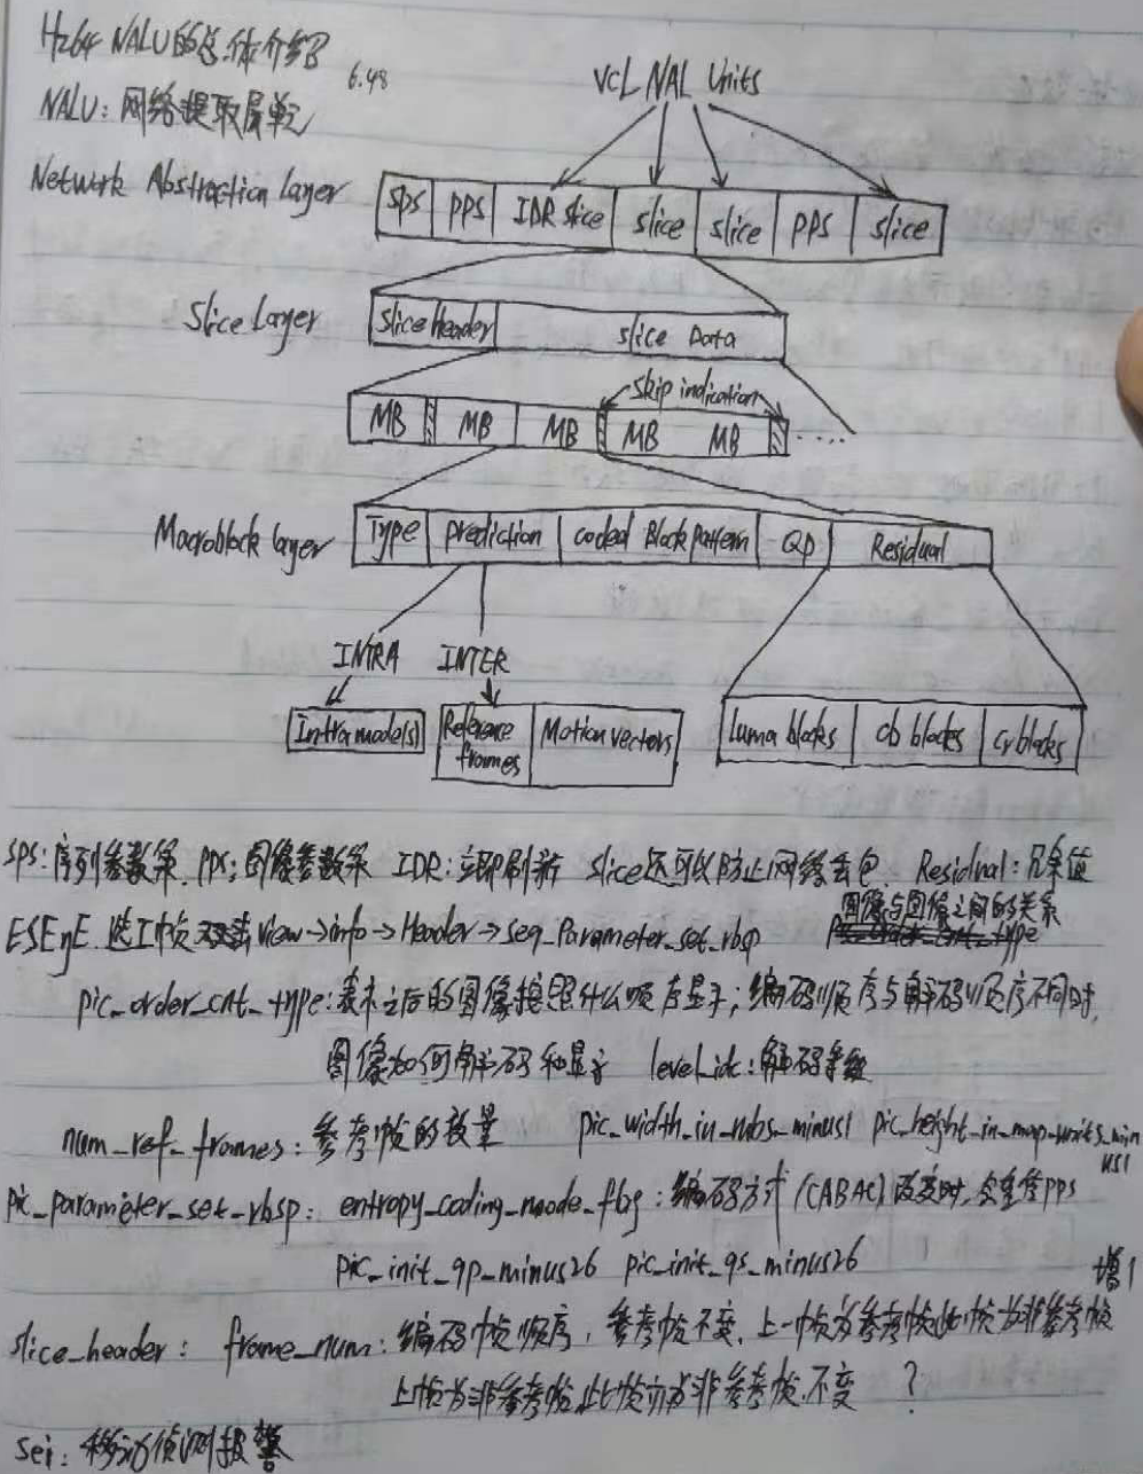 H264 NALU的总体介绍
6.48
NALU：网络提取层单元
VCL NAL Units
Network Abstraction Layer
SPS PPS IDR slice slice slice PPS slice
Slice Layer
Slice Header slice Data
skip indication
MB MB MB MB MB .....
Macroblock layer
Type prediction coded Block Pattern QP Residual
INTRA INTER
Intra mode(s) Reference frames Motion vectors
luma blocks cb blocks cr blocks
SPS：序列参数集. PPS：图像参数集 IDR：立即刷新 slice还可以防止网络丢包. Residual：冗余值
图像与图像之间的关系
ESEyE. 选I帧双击view→info→Header→seq_Parameter_set_rbsp pic_order_cnt_type
pic_order_cnt_type：表示之后的图像按照什么顺序显示；编码顺序与解码顺序不同时,
图像如何解码和显示 level_idc：解码等级
num_ref_frames：参考帧的数量 pic_width_in_mbs_minus1 pic_height_in_map_units_min
us1
pic_parameter_set_rbsp： entropy_coding_mode_flag：编码方式(CABAC)改变时,会重传PPS
pic_init_qp_minus26 pic_init_qs_minus26
增1
slice_header： frame_num：编码帧顺序，参考帧不变、上一帧为参考帧此帧为非参考帧
上帧为非参考帧,此帧亦为非参考帧.不变 ？
sei：移动侦测报警